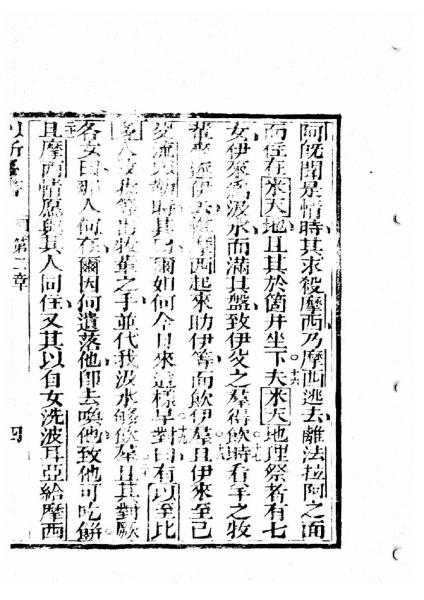 阿既聞是情時其求殺摩西乃摩西逃去離法拉阿之面
而住在米天地且其於箇井坐下夫米天地理祭者有七
女伊來為汲水而滿其盤致伊父之羣得飲時看羊之牧
輩來逐伊去摩西起來助伊等而飲伊羣且伊來至己
時其曰爾如何今日來這樣早對曰有以至比
人救我等出牧輩之手並代我汲水够飲羣且其對厥
各女曰那人何在爾因何遺落他即去喚他致他可吃餅
且摩西情愿與其人同住又其以自女洗波耳亞給摩西
第二章 四